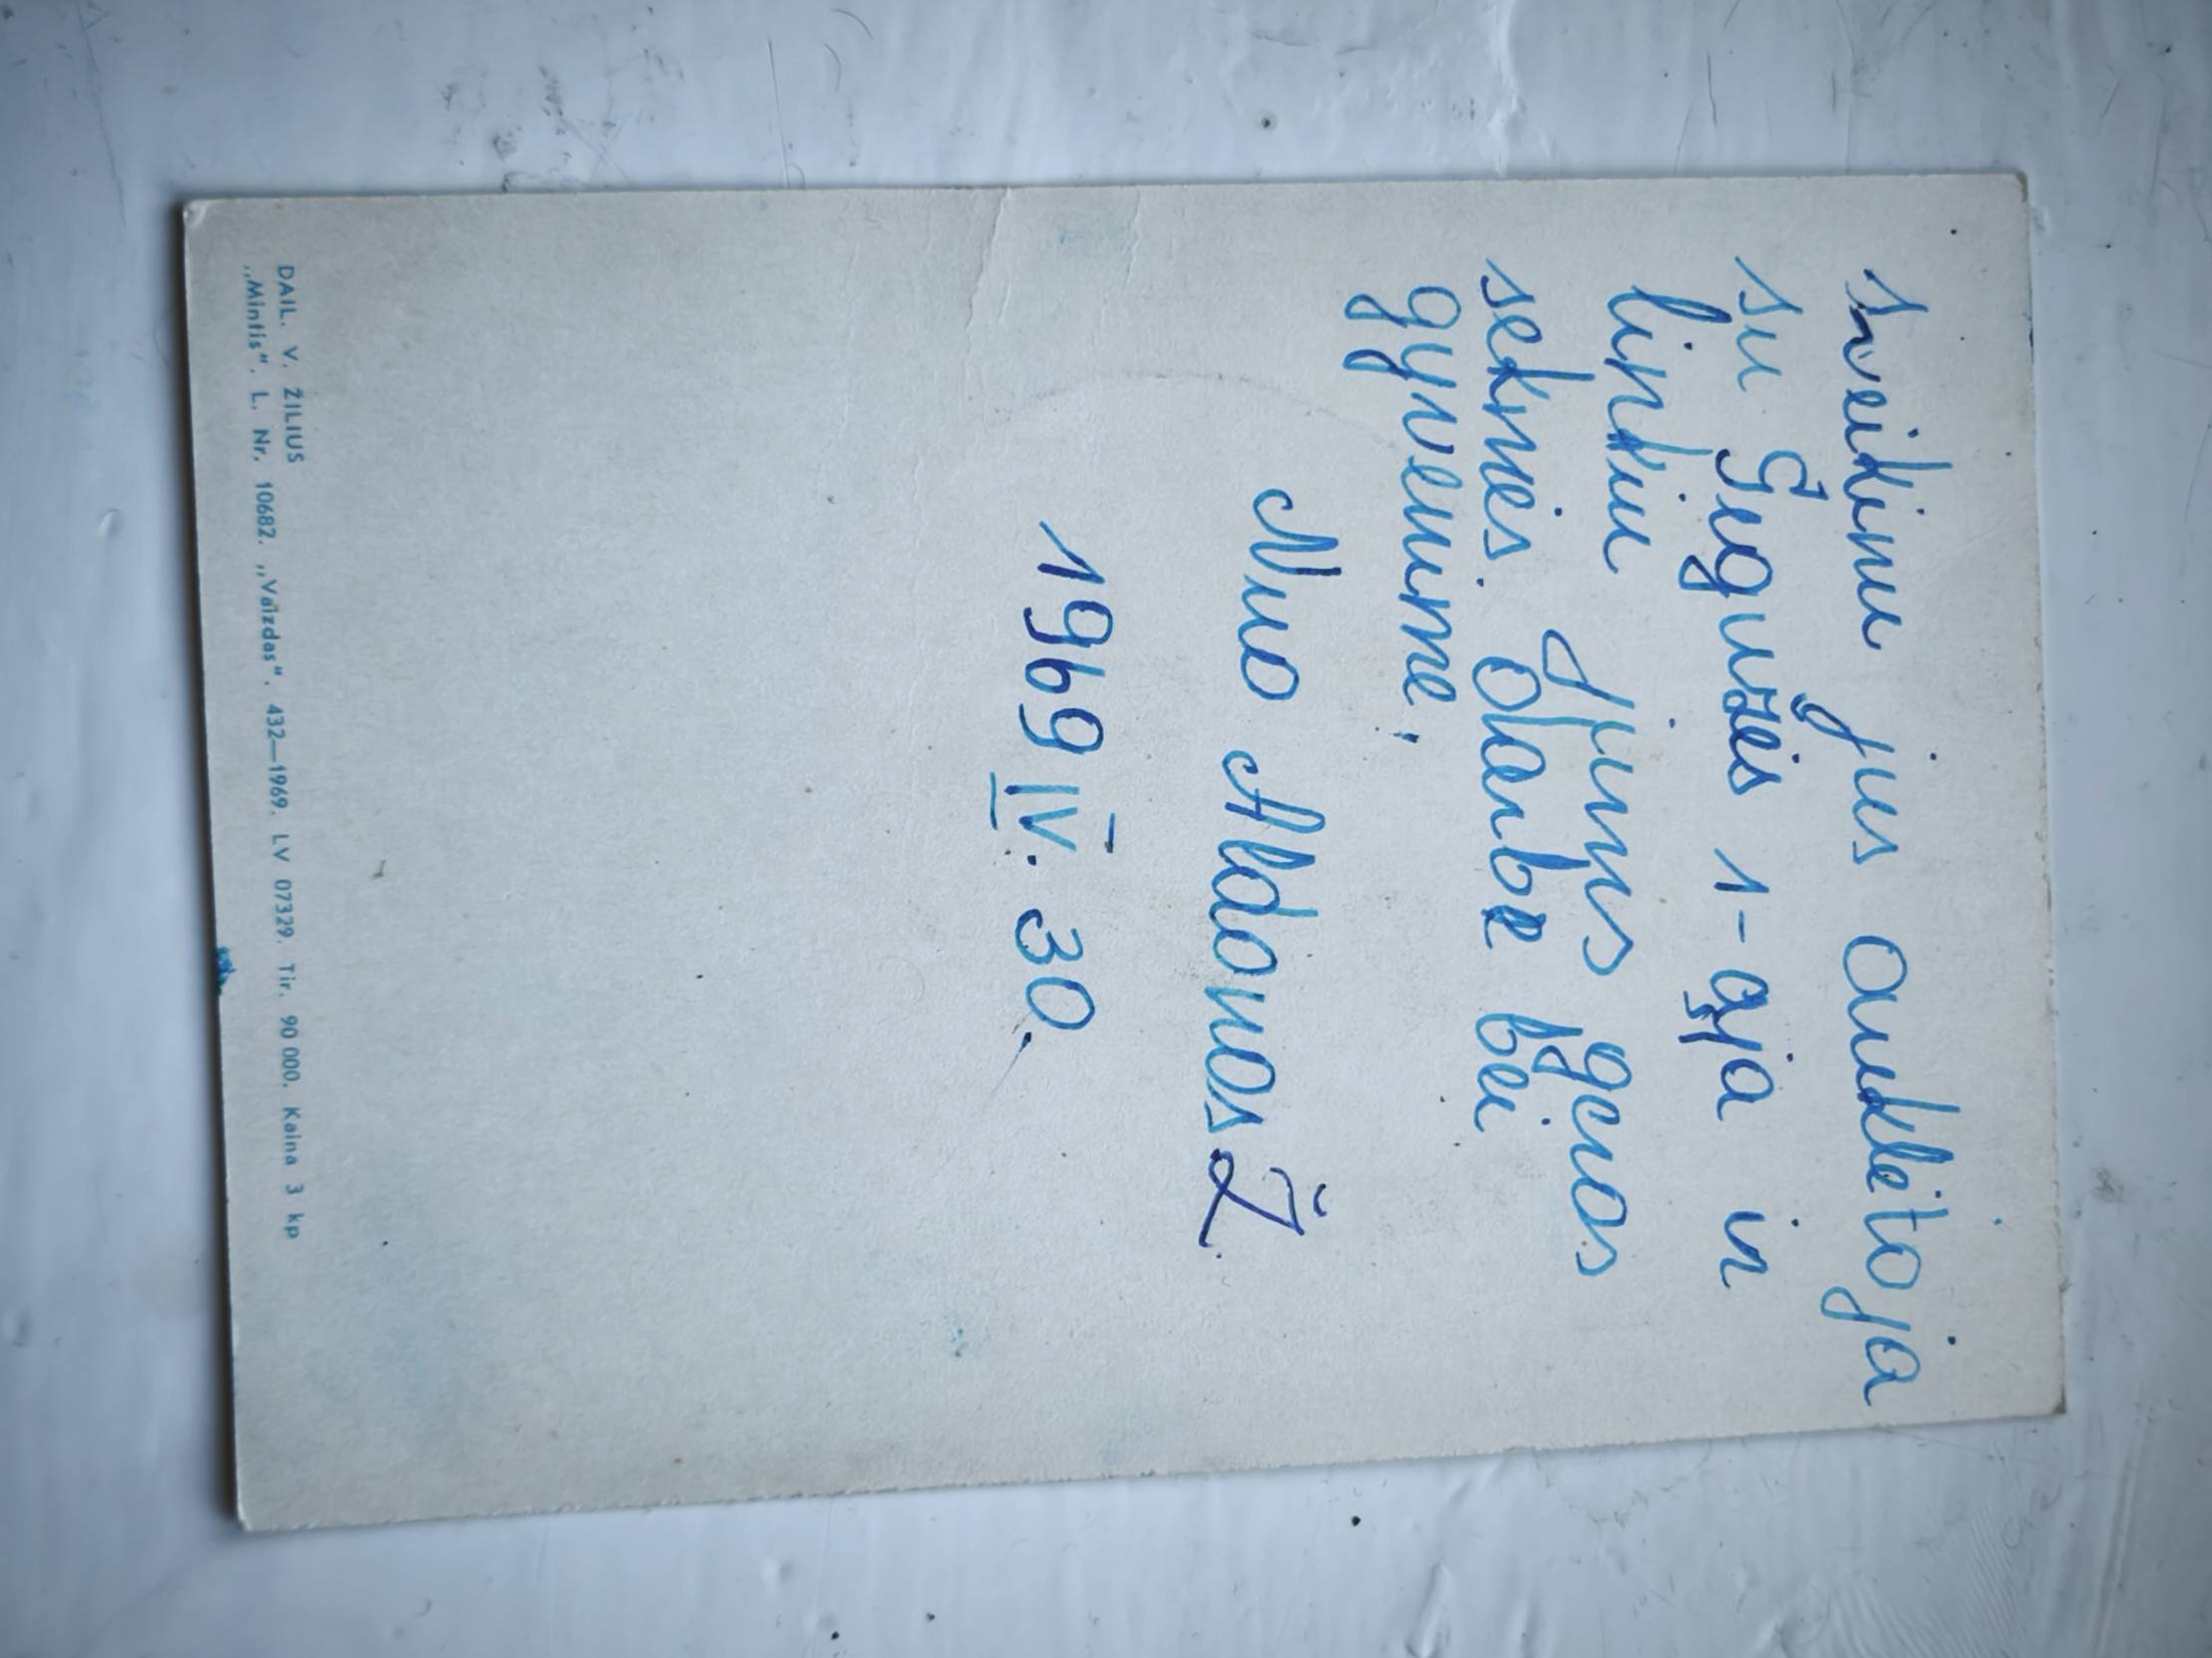 sveikinu jus auklėtoja
su Gegužės 1-ąja ir
linkiu Jums geros
sekmės darbe bei
gyvenime,
Nuo Aldonos Ž.
1969 IV. 30.
DAIL. V. ŽILIUS
„Mintis“. L. Nr. 10682. „Vaizdas“. 432—1969. LV 07329. Tir. 90 000. Kaina 3 kp